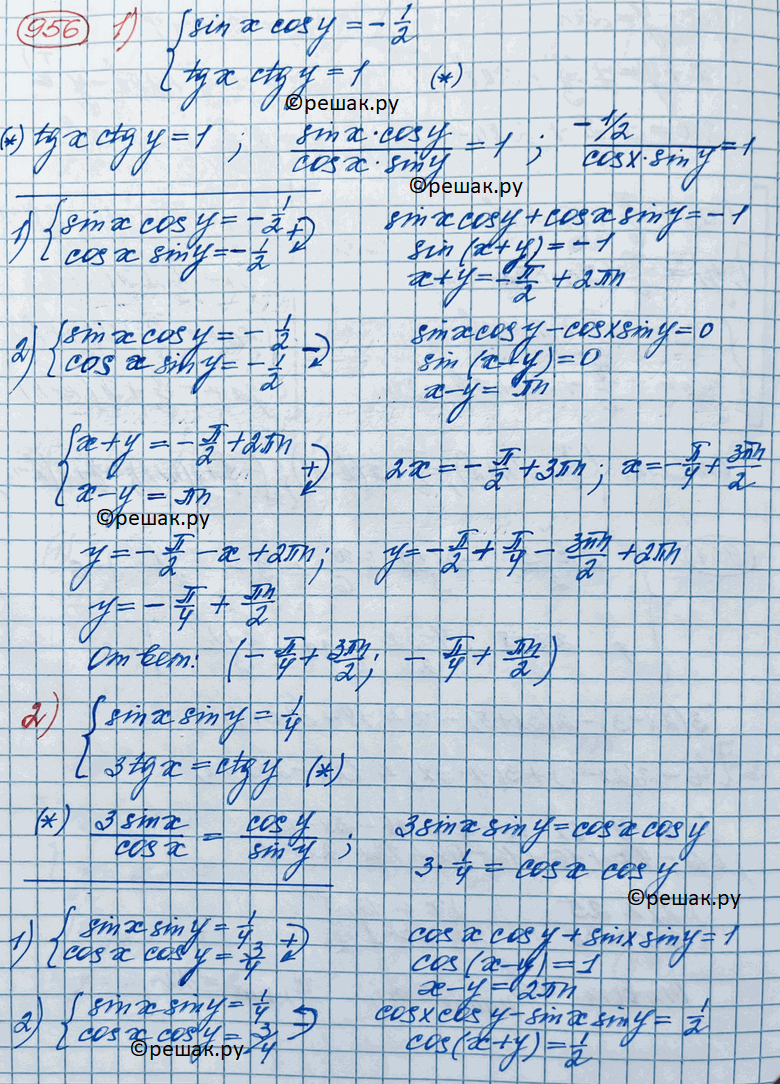 956 1) { sin x cos y = -1/2
tg x ctg y = 1 (*)
©решак.ру
(*) tg x ctg y = 1 ; sin x · cos y / cos x · sin y = 1 ; -1/2 / cos x · sin y = 1
©решак.ру
1) { sin x cos y = -1/2 + sin x cos y + cos x sin y = -1
cos x sin y = -1/2 sin (x+y) = -1
x+y = -π/2 + 2πn
2) { sin x cos y = -1/2 - sin x cos y - cos x sin y = 0
cos x sin y = -1/2 sin (x-y) = 0
x-y = πn
{ x+y = -π/2 + 2πn + 2x = -π/2 + 3πn ; x = -π/4 + 3πn/2
x-y = πn
©решак.ру
y = -π/2 - x + 2πn ; y = -π/2 + π/4 - 3πn/2 + 2πn
y = -π/4 + πn/2
Ответ: (-π/4 + 3πn/2 ; -π/4 + πn/2)
2) { sin x sin y = 1/4
3 tg x = ctg y (*)
(*) 3 sin x / cos x = cos y / sin y ; 3 sin x sin y = cos x cos y
3 · 1/4 = cos x cos y
©решак.ру
1) { sin x sin y = 1/4 + cos x cos y + sin x sin y = 1
cos x cos y = 3/4 cos (x-y) = 1
x-y = 2πn
2) { sin x sin y = 1/4 - cos x cos y - sin x sin y = 1/2
cos x cos y = 3/4 cos (x+y) = 1/2
©решак.ру